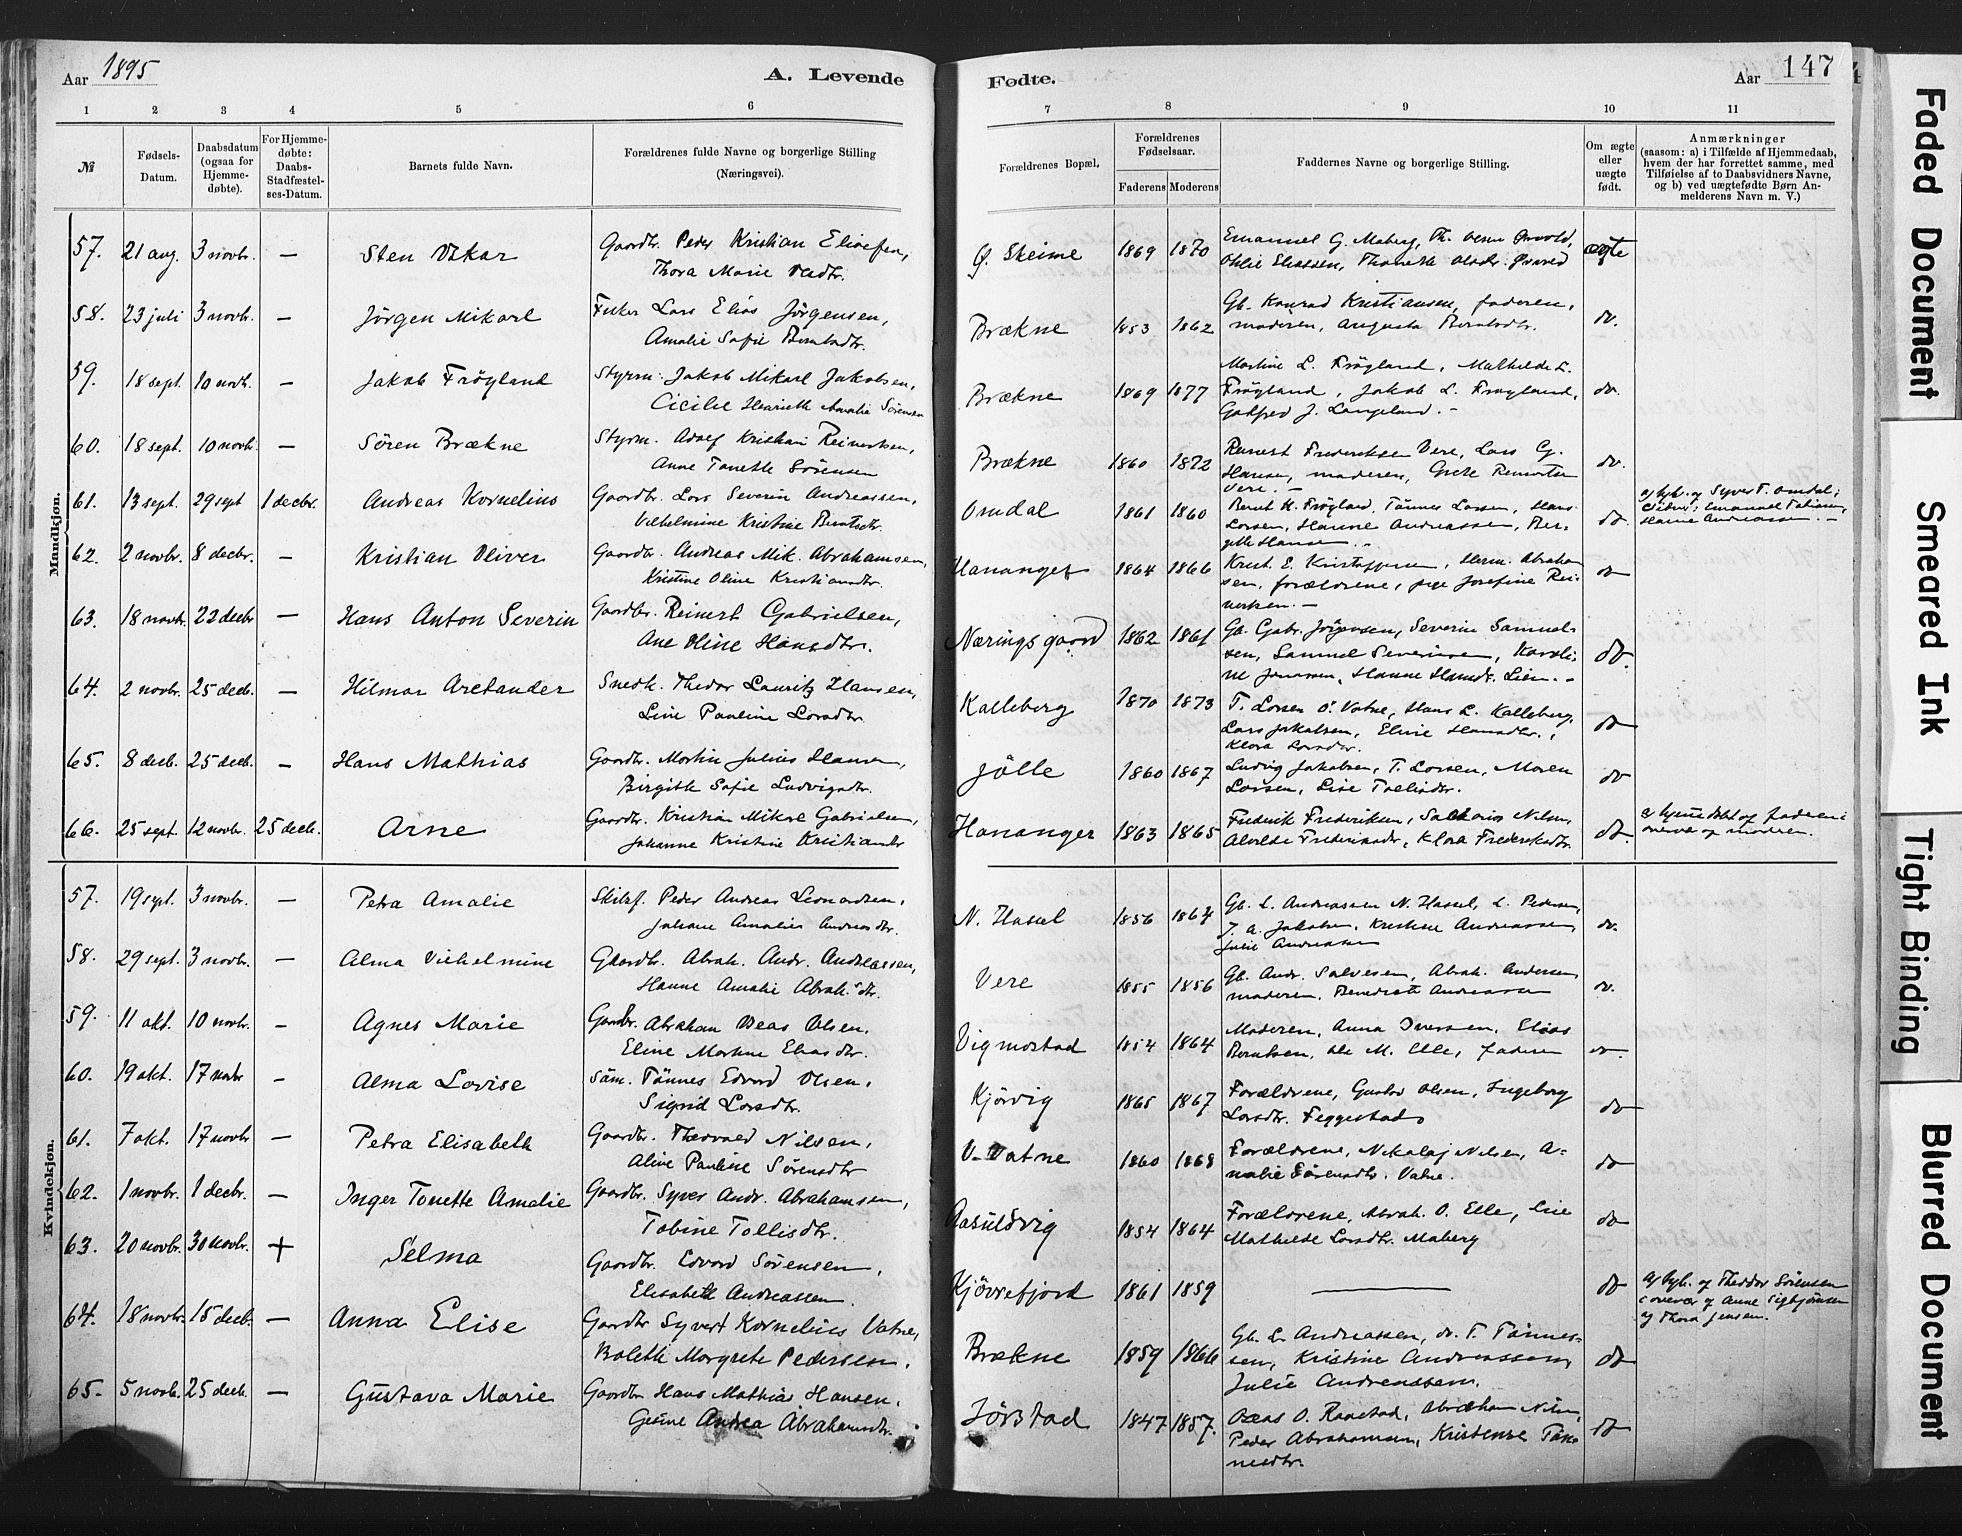 Aar 1895
A. Levende
Fødte.
Aar 147
1 2 3 4 5 6 7 8 9 10 11
№
Fødsels-
Datum.
Daabsdatum
(ogsaa for
Hjemme-
døbte).
For Hjemme-
døbte:
Daabs-
Stadfæstel-
ses-Datum.
Barnets fulde Navn.
Forældrenes fulde Navne og borgerlige Stilling
(Næringsvei).
Forældrenes Bopæl.
Forældrenes
Fødselsaar.
Faderens Moderens
Faddernes Navne og borgerlige Stilling.
Om ægte
eller
uægte
født.
Anmærkninger
(saasom: a) i Tilfælde af Hjemmedaab,
hvem der har forrettet samme, med
Tilføielse af to Daabsvidners Navne,
og b) ved uægtefødte Børn An-
melderens Navn m. V.)
Mandkjøn.
57. 21 aug. 3 novbr. — Sten Oskar Gaardbr. Peder Kristian
Thora Marie
Ø. Skeime 1869 1870 Emanuel G. Maberg, Th.
ægte
58. 23 juli 3 novbr. — Jörgen Mikael Lars Elias Jörgensen,
Amalie Sofie
Brækne 1853 1862 Gb. Konrad Kristiansen, faderen,
moderen, Augusta
do.
59. 18 sept. 10 novb. — Jakob Fröyland Styrm. Jakob Mikael Jakobsen,
Cicilie Henriette Amalie Sörensen
Brækne 1869 1877 Martine L. Fröyland, Mathilde L.
Fröyland, Jakob L. Fröyland,
Gotfred J. Langeland. -
do.
60. 18 sept. 10 novb. — Sören Brækne Styrm. Adolf Kristian Reinertsen,
Anne Tonette Sörensen
Brækne 1860 1872 Reinert Frederiksen Vere, Lars G.
Hansen, moderen, Grete Reinertsen
Vere. -
do.
61. 13 sept. 29 sept 1 decbr. Andreas Kornelius Gaardbr. Lars Severin Andreassen,
Vilhelmine Kristine Berntsdtr.
Omdal 1861 1860 Bernt K. Fröyland, Tönnes Larsen, Hans
Larsen, Hanne Andreassen, Ber-
Hansen. -
do
Syvert T. Omdal;
Emanuel Tobiassen,
Hanne Andreassen. -
62. 2 novbr. 8 decbr. — Kristian Oliver Gaardbr. Andreas Mik. Abrahamsen,
Kristine Oline Kristiansdtr.
Hananger 1864 1866 Krist. E. Kristoffersen, Abraham-
sen, forældrene, pige Josefine Rei-
nertsen. -
do
63. 18 novbr. 22 decbr — Hans Anton Severin Gaardbr. Reinert Gabrielsen,
Ane Oline Hansdtr.
Næringsgaard 1862 1861 Gb. Gabr. Severin Samuel-
sen, Samuel Severinsen, Karoli-
ne Hanne Hansdt. Lien. -
do.
64. 2 novbr. 25 decb. — Hilmar Arctander Snedk. Theodor Lauritz Hansen,
Line Pauline Larsdtr.
Kalleberg 1870 1873 T. Larsen Ö. Vatne, Hans L. Kalleberg,
Lars Jakobsen, Eline Hansdtr.,
Klara Larsdtr.
do
65. 8 decb. 25 decb. — Hans Mathias Gaardbr. Martin Julius Hansen,
Birgitte Sofie Ludvigsdtr.
Jölle 1860 1867 Ludvig Jakobsen, T. Larsen, Maren
Larsen, Lise Tollisdtr.
do
66. 25 sept. 12 novbr. 25 decb. Arne Gaardbr. Kristian Mikael Gabrielsen,
Johanne Kristine Kristiansdtr
Hananger 1863 1865 Frederik Frederiksen, Nilsen,
Frederiksdtr, Klara Frederiksdtr.
do.
a) hjemmedøbt af faderen;
og moderen.
Kvindekjøn.
57. 19 sept. 3 novbr. — Petra Amalie Peder Andreas Leonardsen,
Amalie Andreasdtr.
N. Hassel 1856 1864 Gb. L. Andreassen N. Hassel, L. Pedersen,
J. A. Jakobsen, Kristine Andreassen
Julie Andreassen
do.
58. 29 sept. 3 novbr. — Alma Vilhelmine Gaardb. Abrah. Andr. Andreassen,
Hanne Amalie Abrah.sdtr.
Vere 1855 1856 Gb. Andr. Salvesen, Abrah. Andersen
moderen, Benedicte Andreassen
do.
59. 11 okt. 10 novbr. — Agnes Marie Gaardbr. Abraham Olsen,
Eline Martine Eliasdtr.
Vigmostad 1854 1864 Moderen, Anna Iversen, Elias
Berntsen, Ole M. Elle, faderen
do.
60. 19 okt. 17 novbr — Alma Lovise Söm. Tönnes Edvard Olsen,
Sigrid Larsdtr.
Kjörvig 1865 1867 Forældrene, Gustav Olsen, Ingeborg
Larsdtr. Feggestad
do
61. 7 okt. 17 novbr — Petra Elisabeth Gaardbr. Thorvald Nilsen,
Aline Pauline Sörensdtr
V. Vatne 1860 1868 Forældrene, Nikolaj Nilsen, A-
malie Sörensdtr. Vatne.
do
62. 1 novbr. 1 decbr. — Inger Tonette Amalie Gaardbr. Syver Andr. Abrahamsen,
Tobine Tollisdtr.
Aasuldsvig 1854 1864 Forældrene, Abrah. O. Elle, Line
Mathilde Larsdtr. Maberg
do
63. 20 novbr. 30 novbr. + Selma Gaardbr. Edvard Sörensen,
Elisabeth Andreassen.
Kjörrefjord 1861 1859 —
do
Theodor Sörensen
Anne Sigbjörnsen
og Thora Jensen.
64. 18 novbr. 15 decb. — Anna Elise Gaardbr Syvert Kornelius Vatne,
Bolette Margrete Pedersen.
Brækne 1859 1866 Gb. L. Andreassen, do. T. Tönnes-
sen, Kristine Andreassen,
Julie Andreassen.
do
65. 5 novb. 25 decb. — Gustava Marie Gaardbr Hans Mathias Hansen,
Gesine Andrea Abrahamsdtr.
Jörstad 1847 1857. Oseas O. Raastad, Abraham Nilsen,
Peder Abrahamsen, Kristense Tön-
nesdtr.
do
Faded Document
Smeared Ink
Tight Binding
Blurred Document